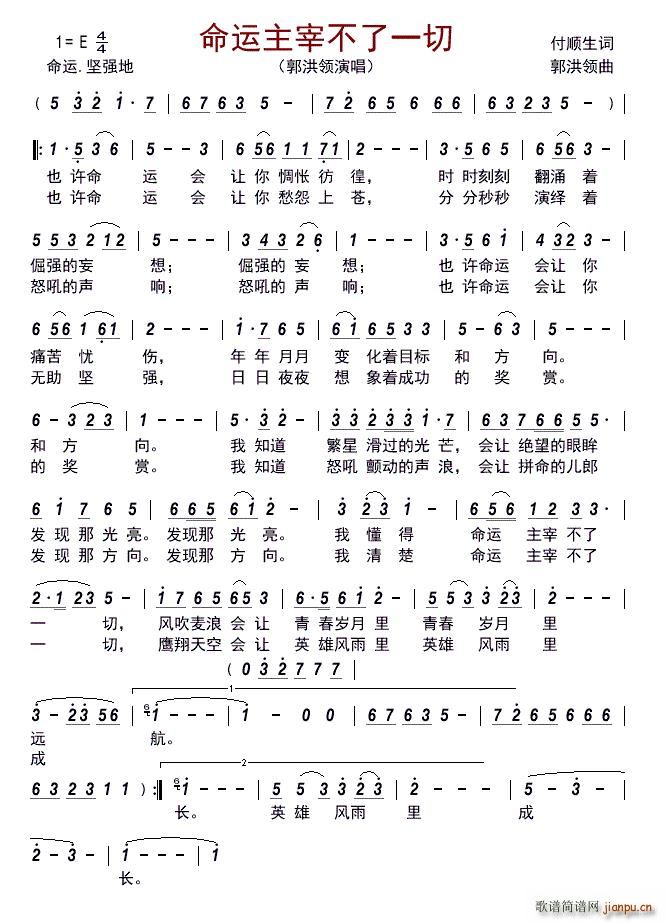 命运主宰不了一切
1= E 4/4
付顺生词
命运.坚强地
（郭洪领演唱）
郭洪领曲
( 5 3 2 1· 7 | 6 7 6 3 5 - | 7 2 6 5 6 6 6 | 6 3 2 3 5 - )
1· 5 3 6 | 5 - - 3 | 6 56 1 1 71 | 2 - - - | 3· 5 6 1 | 2 3 2 3
也许命 运 会 让你惆怅彷徨， 时时刻刻 翻涌着
也许命 运 会 让你愁怨上苍， 分分秒秒 演绎着
5 5 3 2 1 2 | 5 - - - | 3 4 3 2 6 | 5 - - - | 3· 5 6 1 | 4 3 2 2
倔强的妄 想； 倔强的妄 想； 也许命运 会让你
怒吼的声 响； 怒吼的声 响； 也许命运 会让你
6 56 1 61 | 2 - - - | 1· 7 6 5 | 6 1 6 5 3 3 2 | 5 - 6 3 | 5 - - -
痛苦忧 伤， 年年月月 变 化着目标 和方 向。
无助坚 强， 日日夜夜 想 象着成功 的奖 赏。
6 - 3 2 3 | 1 - - - | 5· 3 2 - | 3 3 2 3 3 1· 7 | 6 3 7 6 6 5 5·
和方 向。 我知道 繁星 滑过的光 芒，会让 绝望的眼眸
的奖 赏。 我知道 怒吼 颤动的声 浪，会让 拼命的儿郎
6 1 7 6 5 | 6 6 5 6 1 | 2 - - - | 3 2 3 2 - | 6 5 6 1 2 3 3
发现那光亮。发现那 光亮。 我懂得 命运 主宰不了
发现那方向。发现那 方向。 我清楚 命运 主宰不了
2· 1 2 3 5 - | 1 7 6 5 6 5 3 | 6· 5 6 1 2 - | 5 5 3 3 2 2 -
一 切， 风吹麦浪 会 让 青春岁月 里 青春 岁月 里
一 切， 鹰翔天空 会 让 英雄风雨 里 英雄 风雨 里
( 0 3 2 7 7 7 |
1
3 - 2 3 5 6 | 1 - - - | 1 - 0 0 | 6 7 6 3 5 - | 7 2 6 5 6 6 6
远 航。
成
2
6 3 2 3 1 1 ) | 1 - - - | 5 5 3 3 | 2 - - - | 5 - 3 -
长。 英雄 风雨 里 成
2 - 3 - | 1 - - - | 1 - - -
长。
歌谱简谱网
jianpu.cn